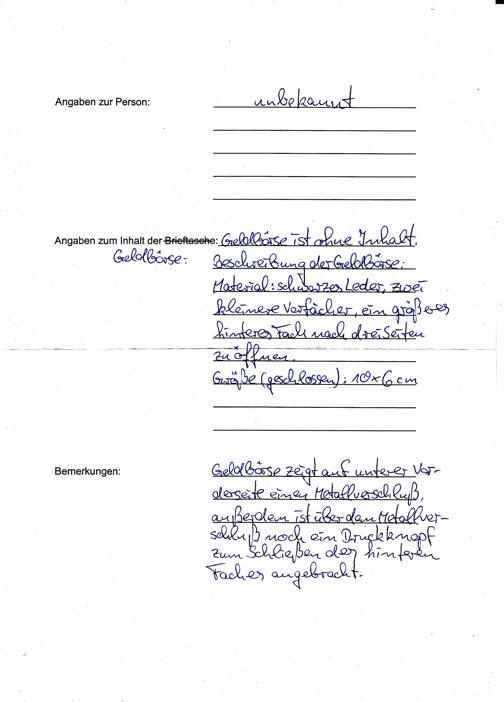 Angaben zur Person: unbekannt
Angaben zum Inhalt der Brieftasche: Geldbörse ist ohne Inhalt.
Geldbörse: Beschreibung der Geldbörse:
Material: schwarzes Leder, zwei
kleinere Vorfächer, ein größeres
hinteres Fach nach drei Seiten
zu öffnen.
Größe (geschlossen): 10x6 cm
Bemerkungen: Geldbörse zeigt auf unterer Vor-
derseite einen Metallverschluß,
außerdem ist über dem Metallver-
schluß noch ein Druckknopf
zum Schließen des hinteren
Faches angebracht.